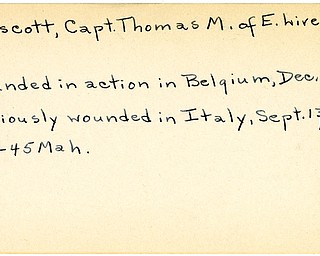 scott, Capt. Thomas M. of E. Live
nded in action in Belgium, Dec.
iously wounded in Italy, Sept. 13
-45 Mah.